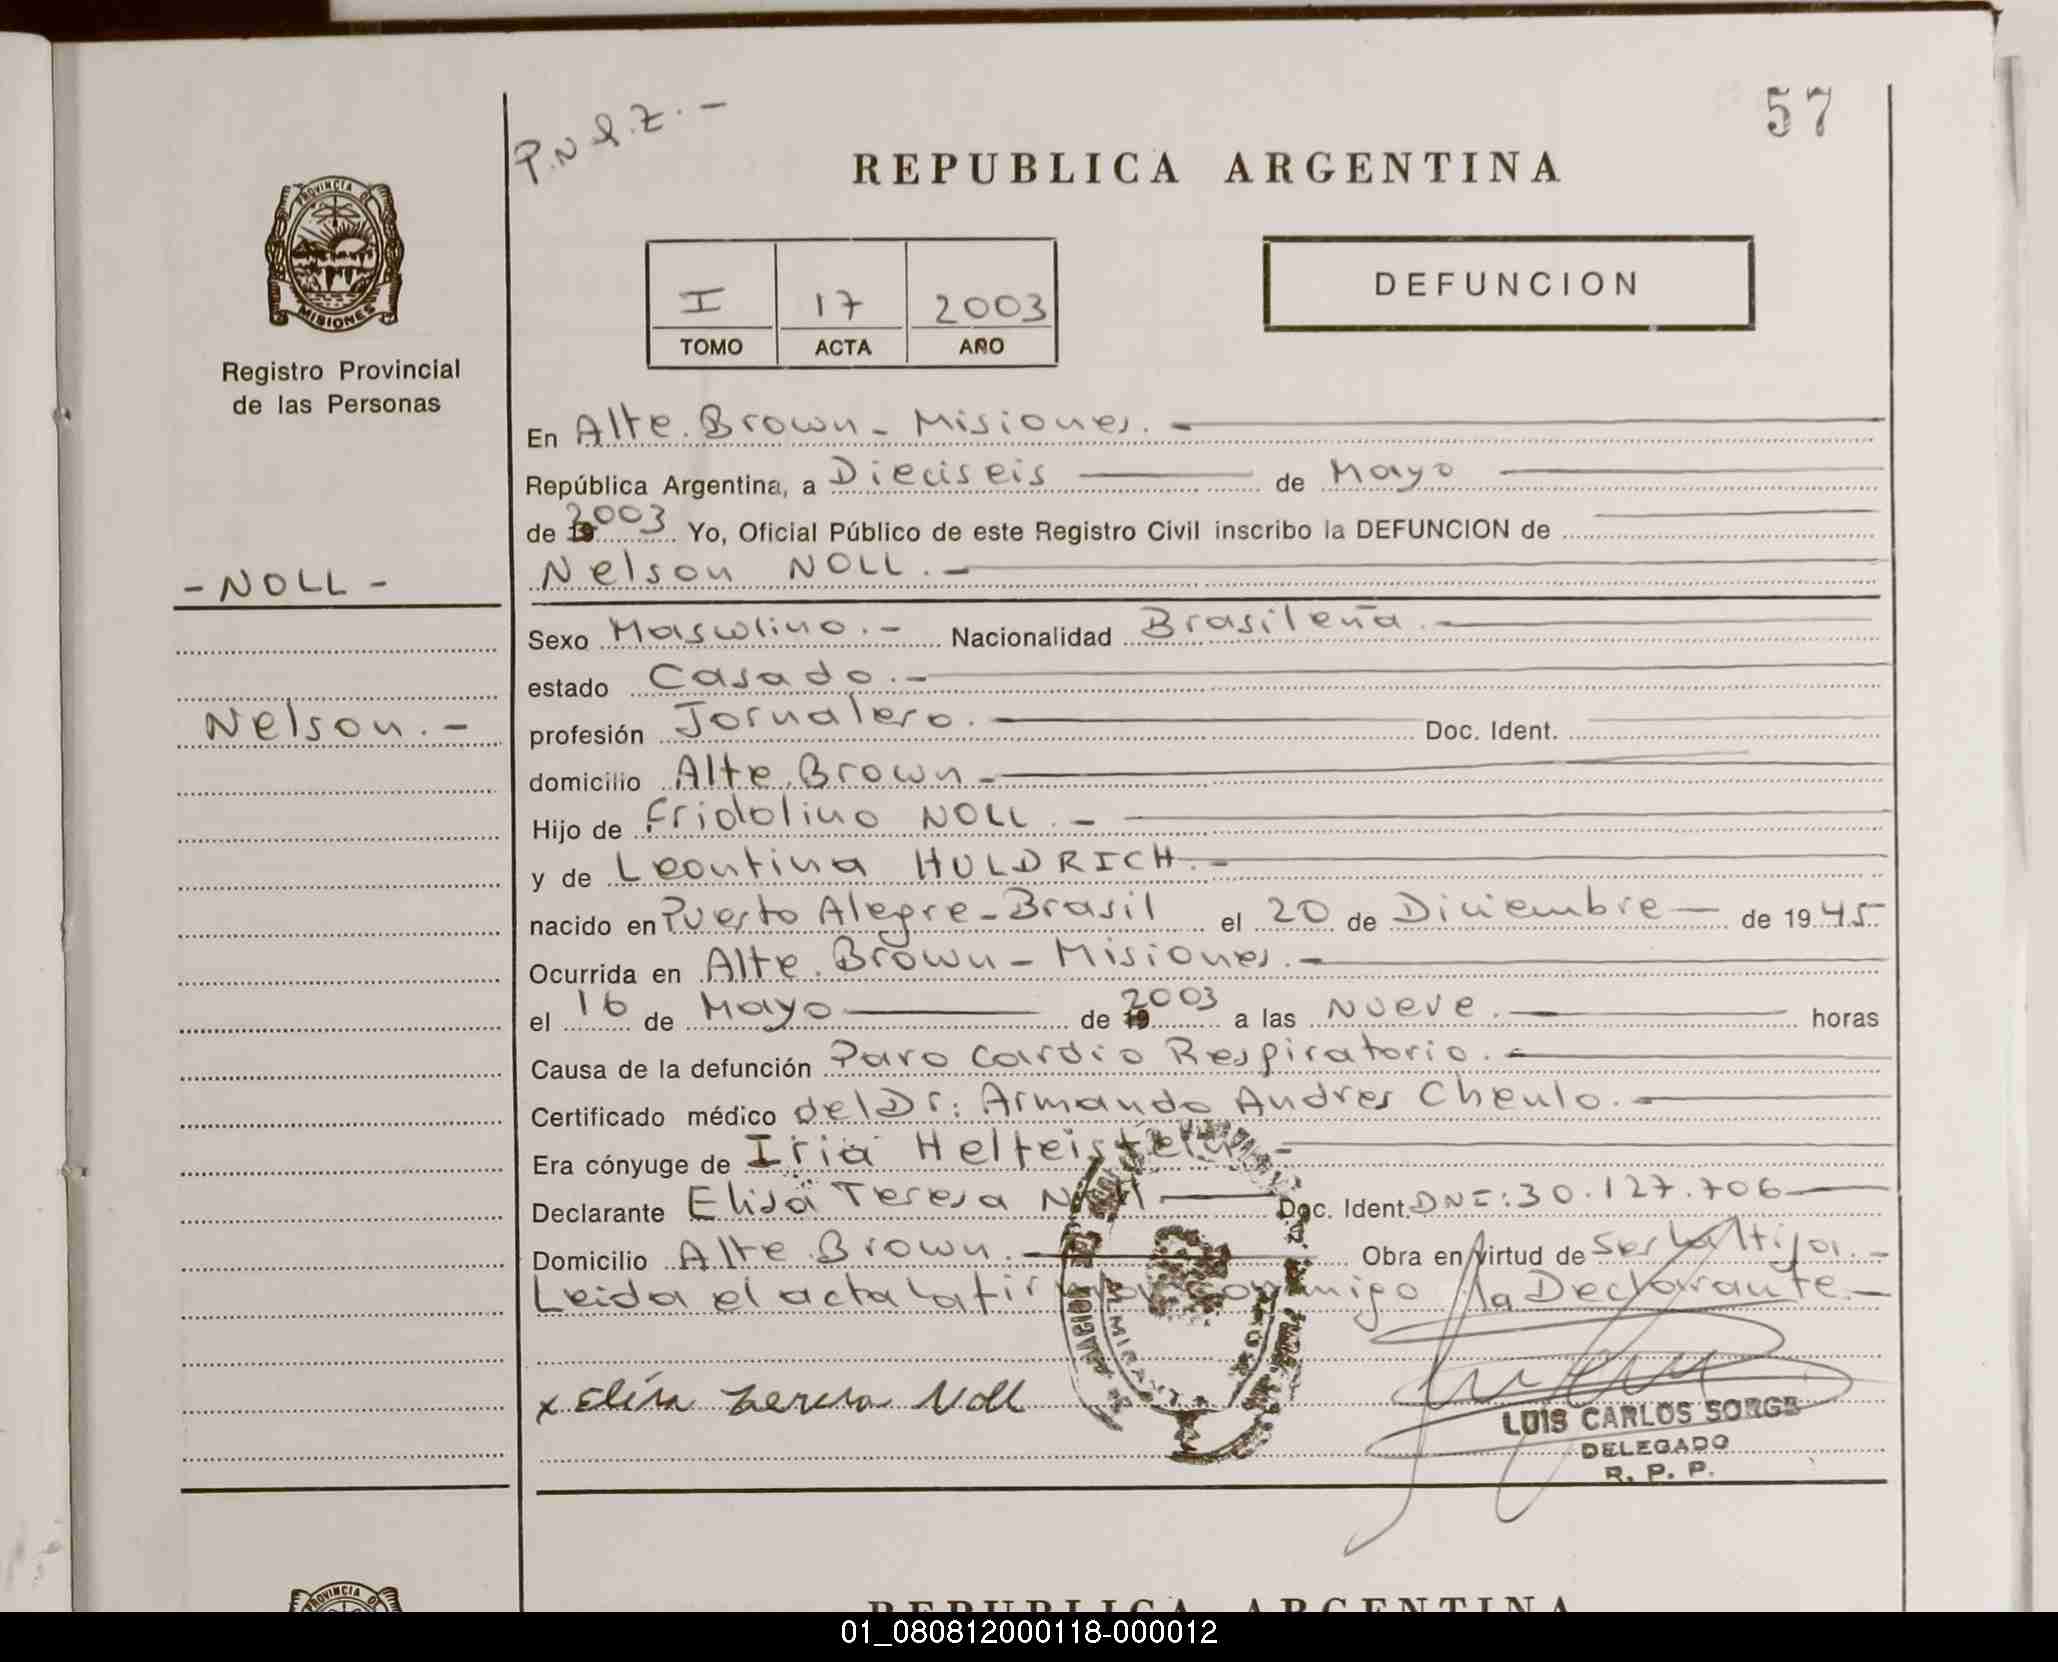 57
P.N.
REPUBLICA ARGENTINA
PROVINCIA DE
MISIONES
Registro Provincial
de las Personas
I 17 2003
TOMO ACTA AÑO
DEFUNCION
En Alte. Brown - Misiones. -
República Argentina, a Dieciseis de Mayo
de 2003 Yo, Oficial Público de este Registro Civil inscribo la DEFUNCION de
- NOLL -
Nelson NOLL. -
Sexo Masculino. - Nacionalidad Brasileña. -
estado Casado. -
Nelson. -
profesión Jornalero. - Doc. Ident.
domicilio Alte. Brown -
Hijo de Fridolino NOLL. -
y de Leontina HULDRICH. -
nacido en Puerto Alegre - Brasil el 20 de Diciembre - de 1945
Ocurrida en Alte. Brown - Misiones. -
el 16 de Mayo de 2003 a las Nueve. - horas
Causa de la defunción Paro Cardio Respiratorio. -
Certificado médico del Dr: Armando Andres Cheulo. -
Era cónyuge de Iria
Declarante Elisa Teresa Noll Doc. Ident. DNI: 30.127.706
Domicilio Alte. Brown. - Obra en virtud de Ser La Hija. -
Leida el acta la firma conmigo la Declarante. -
x Elisa Teresa Noll
LUIS CARLOS SORGE
DELEGADO
R. P. P.
PROVINCIA
REPUBLICA ARGENTINA
01_080812000118-000012